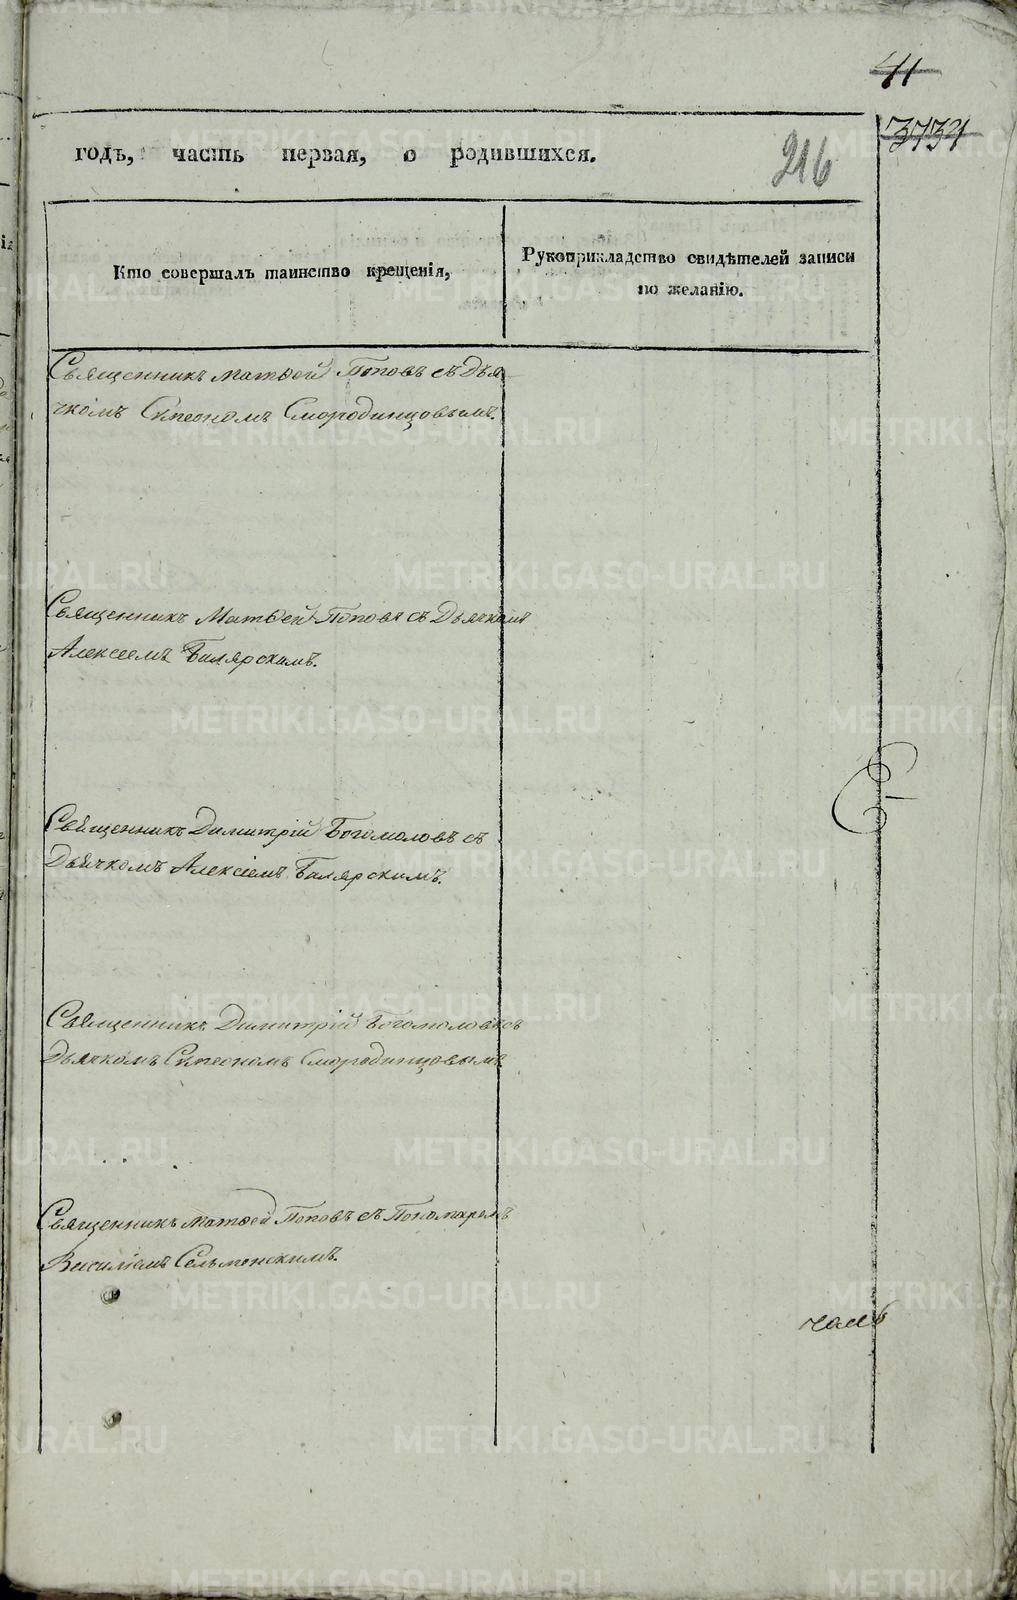 41
3731
годъ, часть первая, о родившихся.
216
Кто совершалъ таинство крещенія,
Рукоприкладство свидѣтелей записи
по желанію.
Священникъ Матѳей Поповъ съ Дья
чкомъ Сѵмеономъ Смородинцовымъ.
Священникъ Матѳей Поповъ съ Дьячкомъ
Алексеемъ Билярскимъ.
Священникъ Димитрій Богомоловъ съ
Дьячкомъ Алексіемъ Билярскимъ.
Священникъ Димитрій Богомоловъ съ
Дьячкомъ Сѵмеономъ Смородинцовымъ
Священникъ Матѳей Поповъ съ Пономаремъ
Василіемъ Сельменскимъ.
METRIKI.GASO-URAL.RU